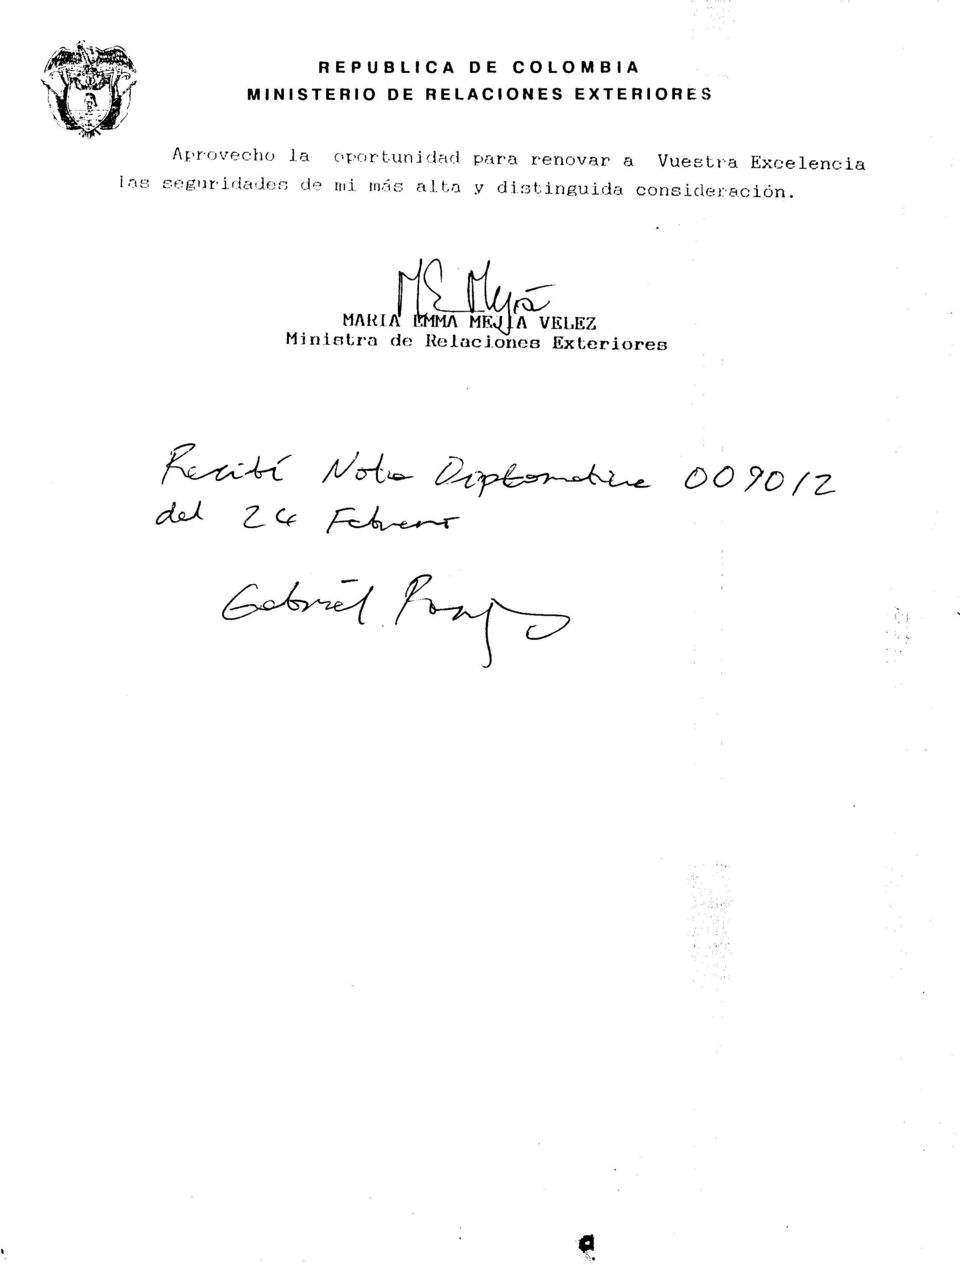 REPUBLICA DE COLOMBIA
MINISTERIO DE RELACIONES EXTERIORES
Aprovecho la oportunidad para renovar a Vuestra Excelencia
las seguridades de mi más alta y distinguida consideración.
ME Mejía
MARIA EMMA MEJIA VELEZ
Ministra de Relaciones Exteriores
Recibí Nota Diplomática 009012
del 24 Febrero
Gabriel